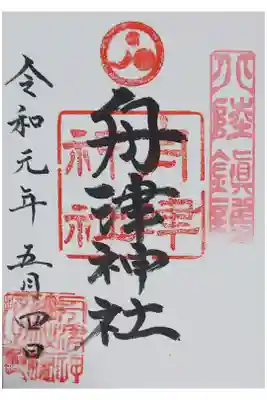 北陸鎮護
舟津神社
舟津神社
令和元年五月四日